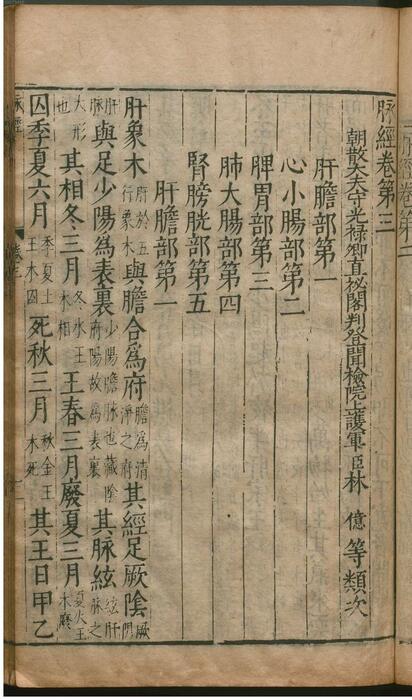 脉經卷第三
朝散大夫守光祿卿直祕閣判登聞檢院上護軍臣林 億 等類次
肝膽部第一
心小腸部第二
脾胃部第三
肺大腸部第四
腎膀胱部第五
肝膽部第一
肝象木肝於五行象木與膽合爲府膽爲清淨之府其經足厥陰厥陰
肝脉與足少陽爲表裏少陽膽脉也藏陰府陽故爲表裏其脉絃絃肝脉之
大形也其相冬三月冬水王木相王春三月廢夏三月夏火王木廢
囚季夏六月季夏土王木囚死秋三月秋金王木死其王日甲乙